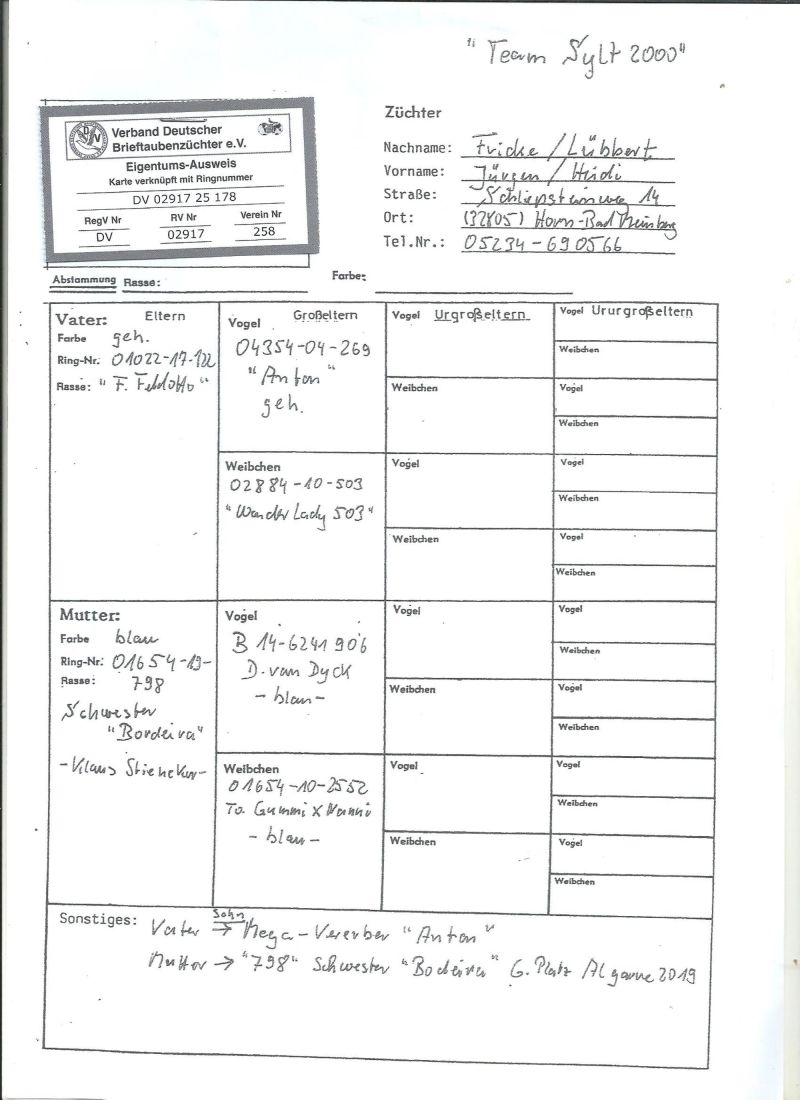 "Team Sylt 2000"
Verband Deutscher
Brieftaubenzüchter e.V.
Eigentums-Ausweis
Karte verknüpft mit Ringnummer
DV 02917 25 178
RegV Nr RV Nr Verein Nr
DV 02917 258
Züchter
Nachname: Fricke / Lübbert
Vorname: Jürgen / Heidi
Straße: Schliepsteinweg 14
Ort: (32805) Horn-Bad Meinberg
Tel.Nr.: 05234-690566
Abstammung Rasse: Farbe:
Vater: Eltern
Farbe geh.
Ring-Nr. 01022-17-122
Rasse: "F. Feldotto"
Vogel Großeltern
04354-04-269
"Anton"
geh.
Weibchen
02884-10-503
"Wunder Lady 503"
Mutter:
Farbe blau
Ring-Nr. 01654-19-
Rasse: 798
Schwester
"Bordeira"
-Klaus Stieneker-
Vogel
B 14-6241906
D. van Dyck
- blau -
Weibchen
01654-10-2552
To. Gummi x Nanni
- blau -
Vogel Urgroßeltern
Weibchen
Vogel
Weibchen
Vogel
Weibchen
Vogel
Weibchen
Vogel Ururgroßeltern
Weibchen
Vogel
Weibchen
Vogel
Weibchen
Vogel
Weibchen
Vogel
Weibchen
Vogel
Weibchen
Vogel
Weibchen
Vogel
Weibchen
Sonstiges: Vater → Sohn Mega-Vererber "Anton"
Mutter → "798" Schwester "Bodeira" 6. Platz Algarve 2019